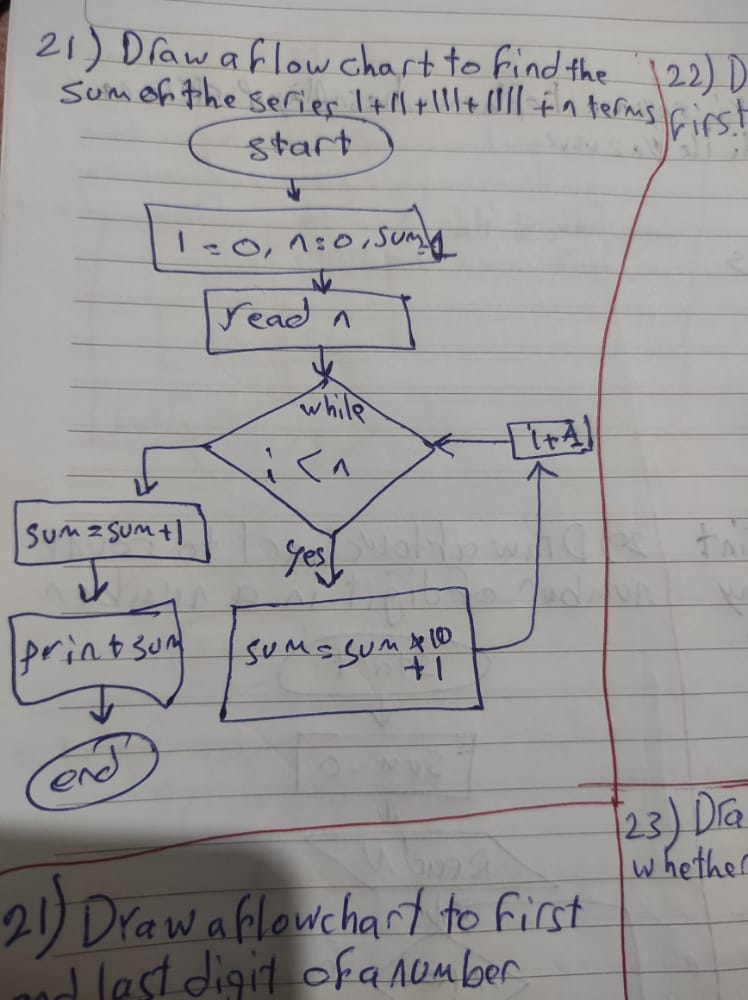 21) Draw a flow chart to find the
sum of the series 1+11+111+1111 + n terms
start
i = 0, n = 0, sum=1
read n
while
i < n
i+1
sum = sum+1
yes
print sum
sum = sum *10
+1
end
22) D
first
23) Dra
whether
21) Draw a flowchart to first
and last digit of a number